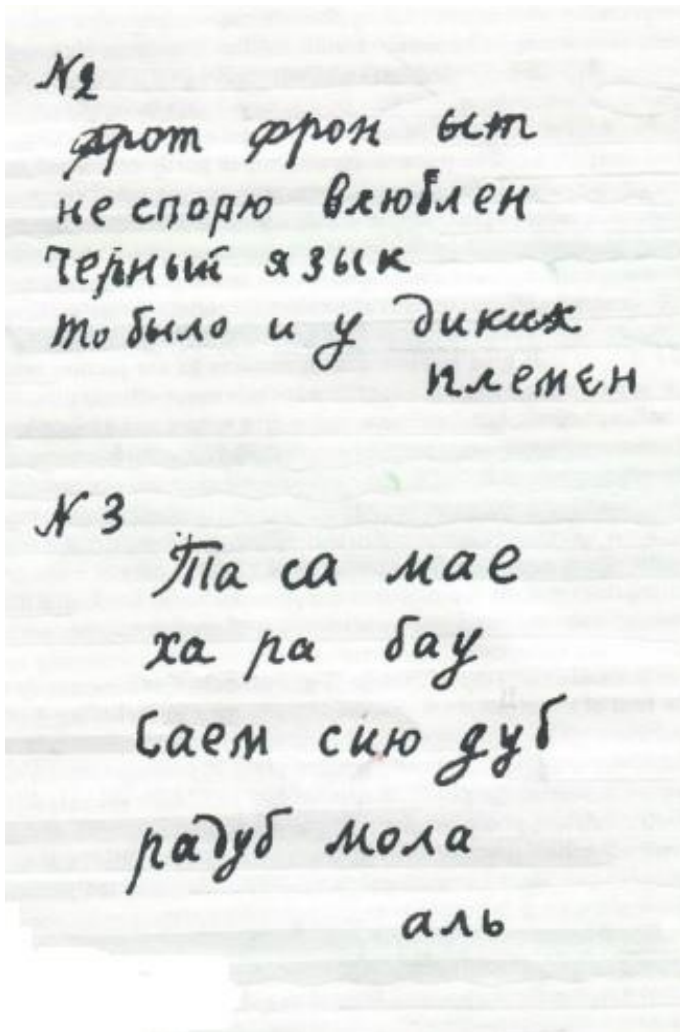 №2
фрот фрон ыт
не спорю влюблен
Черный язык
то было и у диких
племен
№ 3
Та са мае
ха ра бау
Саем сию дуб
радуб мола
аль